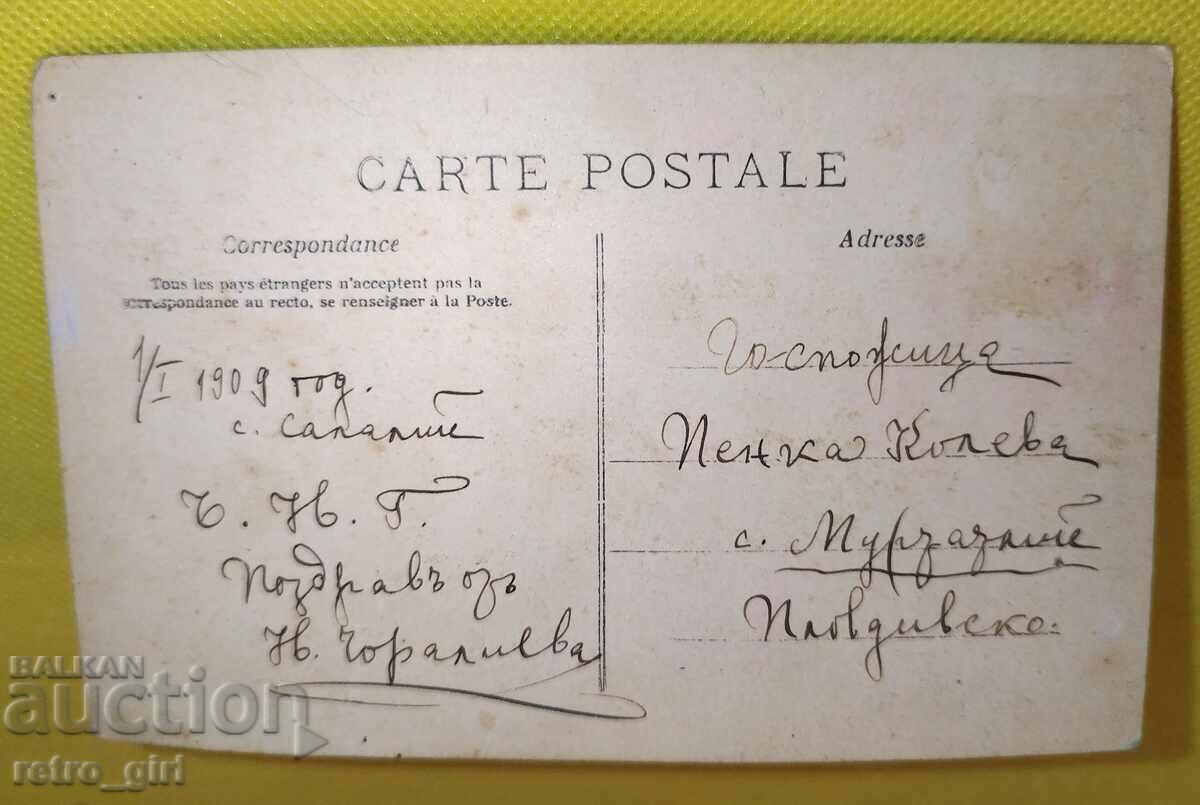 CARTE POSTALE
Correspondance
Tous les pays étrangers n'acceptent pas la
correspondance au recto, se renseigner à la Poste.
1/I 1909 год.
с.
Ч. Н. Г.
Поздравъ отъ
Н.
Adresse
Го-спожица
Пенка Колева
с.
Пловдивско.
BALKAN
auction
retro_girl